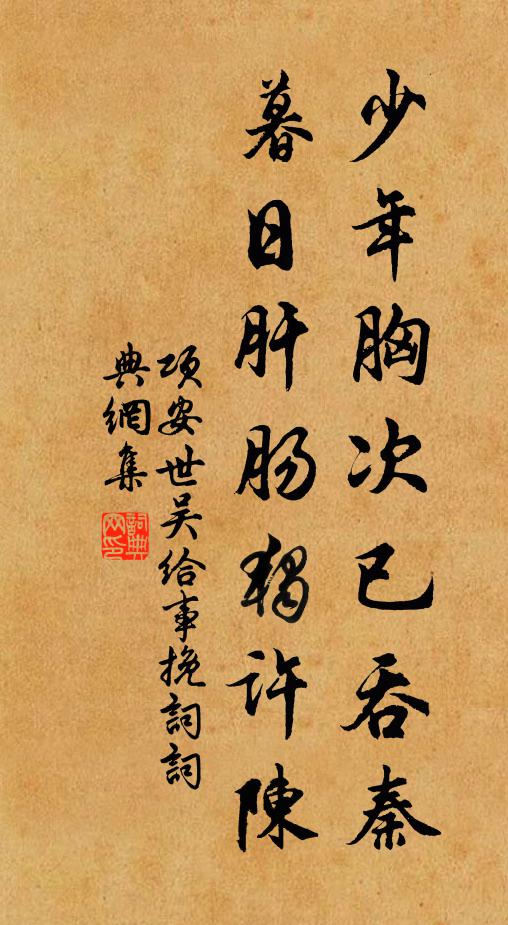 少年胸次已吞秦
暮日肝肠獨許陳
项安世吴给事挽詞詞
典網集
詞典
网印